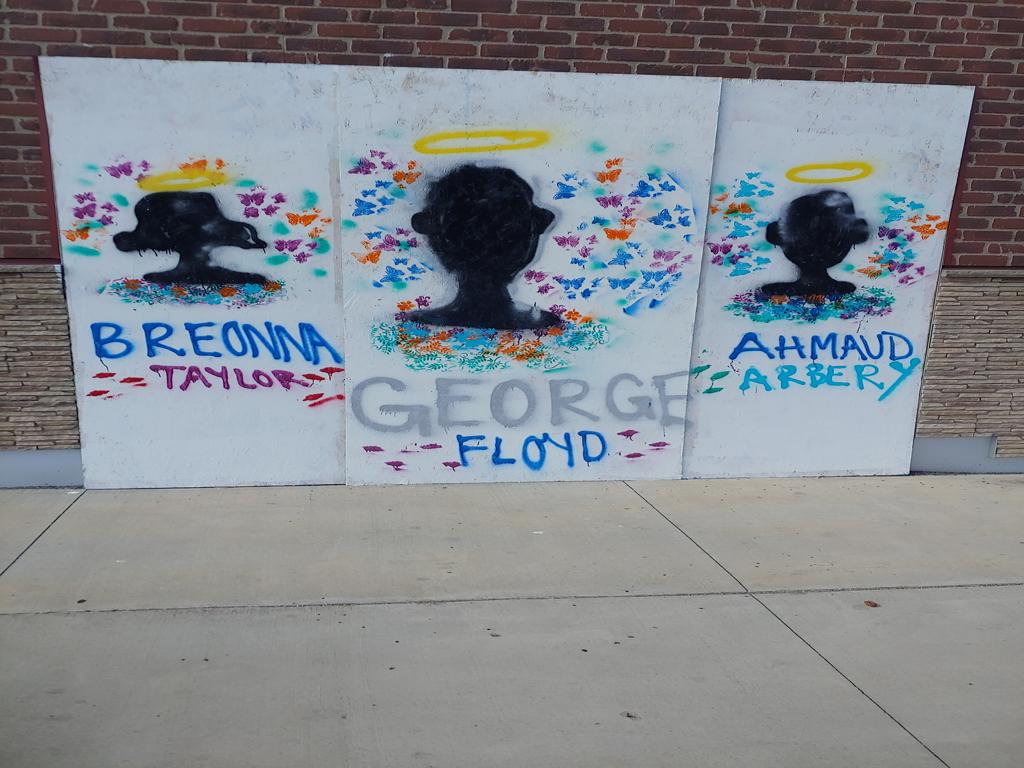 BREONNA
TAYLOR
GEORGE
FLOYD
AHMAUD
ARBERY